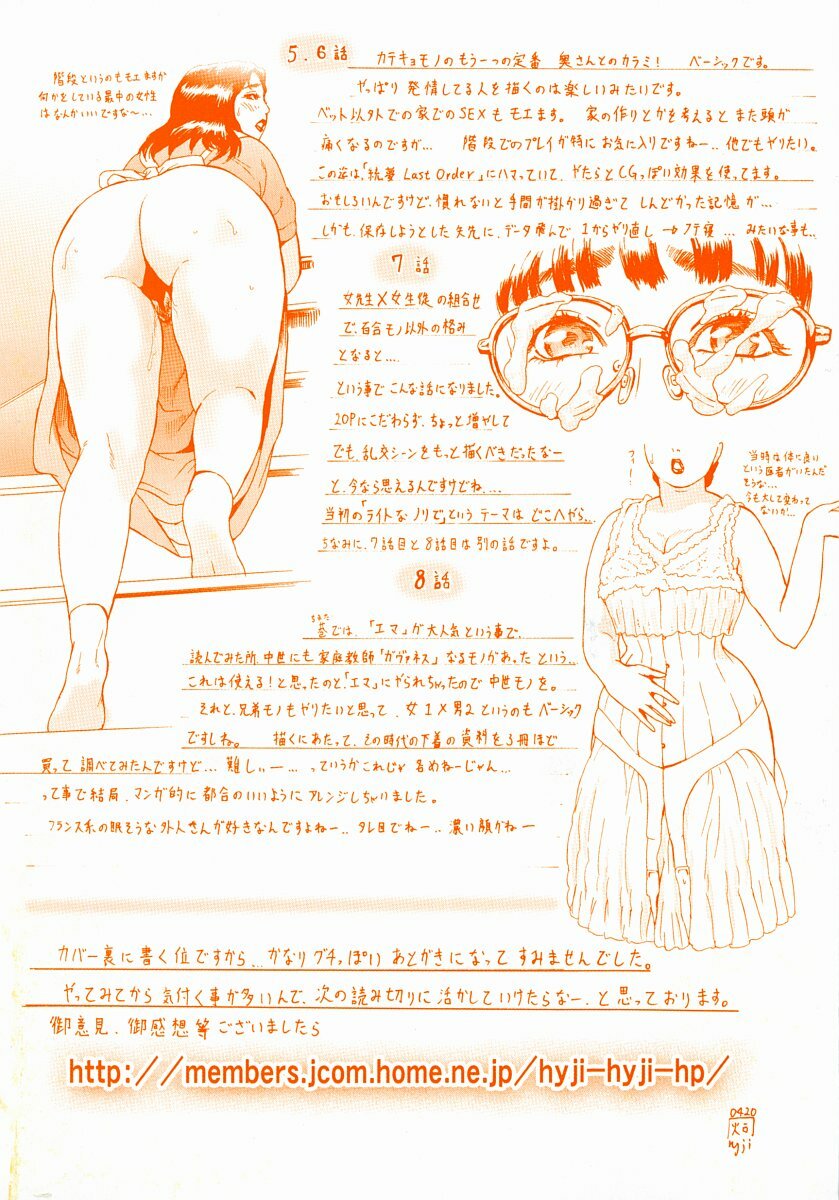 5.6話
カテキョモノのもう一つの定番 奥さんとのカラミ! ベーシックです。
階段というのもモエますが
何かをしている最中の女性
はなんかいいですな〜…
やっぱり発情してる人を描くのは楽しいみたいです。
ベット以外での家でのSEXもモエます。 家の作りとかを考えるとまた頭が
痛くなるのですが… 階段でのプレイが特にお気に入りですねー..他でもやりたい。
この姿は「銃夢 Last Order」にハマっていて、やたらとCGっぽい効果を使ってます。
おもしろいんですけど、慣れないと手間が掛かり過ぎてしんどかった記憶が…
しかも、保存しようとした矢先に、データ飛んで1からやり直し→フテ寝…みたいな事も、
7話
女先生×女生徒の組合せ
で、百合モノ以外の絡み
となると…
という事でこんな話になりました。
20Pにこだわらず、ちょっと増やして
でも、乱交シーンをもっと描くべきだったなー
と、今なら思えるんですけどね….
当初の「ライトなノリで」というテーマはどこへやら..
ちなみに、7話目と8話目は別の話ですよ。
フィー!
当時は体に良い
という医者がいたんだ
そうな…
今も大して変わって
ないが!..
8話
ちまた
巷では、「エマ」が大人気という事で、
読んでみた所、中世にも家庭教師「ガヴァネス」なるモノがあったという..
これは使える!と思ったのと「エマ」にやられちゃったので中世モノを。
それと、兄弟モノもやりたいと思って、女1×男2というのもベーシック
ですしね。 描くにあたって、その時代の下着の資料を3冊ほど
買って調べてみたんですけど…難しぃー…っていうかこれじゃ名めねーじゃん…
って事で結局、マンガ的に都合のいいようにアレンジしちゃいました。
フランス系の眠そうな外人さんが好きなんですよねー..タレ目でねー..濃い顔がねー
カバー裏に書く位ですから…かなりグチっぽいあとがきになってすみませんでした。
やってみてから気付く事が多いんで、次の読み切りに活かしていけたらなー、と思っております。
御意見、御感想等ございましたら
http://members.jcom.home.ne.jp/hyji-hyji-hp/
0420
hyji